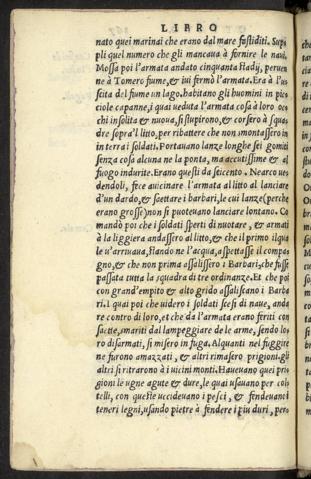 LIBRO
nato quei marinai che erano dal mare fastiditi. Sup
plì quel numero che gli mancaua à fornire le naui.
Mossa poi l'armata andato cinquanta stadÿ, peruen
ne à Tomero fiume, & iui fermò l'armata. Era à l'u
scita del fiume un lago. habitano gli huomini in pic
ciole capanne, i quai veduta l'armata cosa à loro oc
chi insolita & nuoua, si stupirono, & corsero à squa
dre sopra'l litto, per ribattere che non smontassero in
in terra i soldati. Portauano lanze longhe sei gomiti
senza cosa alcuna ne la ponta, ma accutissime & al
fuogo indurite. Erano questi da seicento. Nearco ue
dendoli, fece auicinare l'armata al litto al lanciare
d'un dardo, & saettare i barbari, le cui lanze (perche
erano grosse) non si puoteuano lanciare lontano. Co
mandò poi che i soldati sperti di nuotare, & armati
à la liggiera andassero al litto, & che il primo ilqua
le u'arriuaua, stando ne l'acqua, aspettasse il compa
gno, & che non prima assalissero i Barbari, che fusse
passata tutta la squadra di tre ordinanze. Et che poi
con grand'empito & alto grido assaliscano i Barba
ri. I quai poi che uidero i soldati scesi di naue, anda
re contro di loro, et che da l'armata erano feriti con
saette, smariti dal lampeggiare de le arme, sendo lo
ro disarmati, si misero in fuga. Alquanti nel fuggire
ne furono amazzati, & altri rimasero prigioni. gli
altri si ritrarono à i uicini monti. Haueuano quei pri
gioni le ugne agute & dure, le quai usauano per col
telli, con queste uccideuano i pesci, & fendeuano i
teneri legni, usando pietre à fendere i piu duri, pero